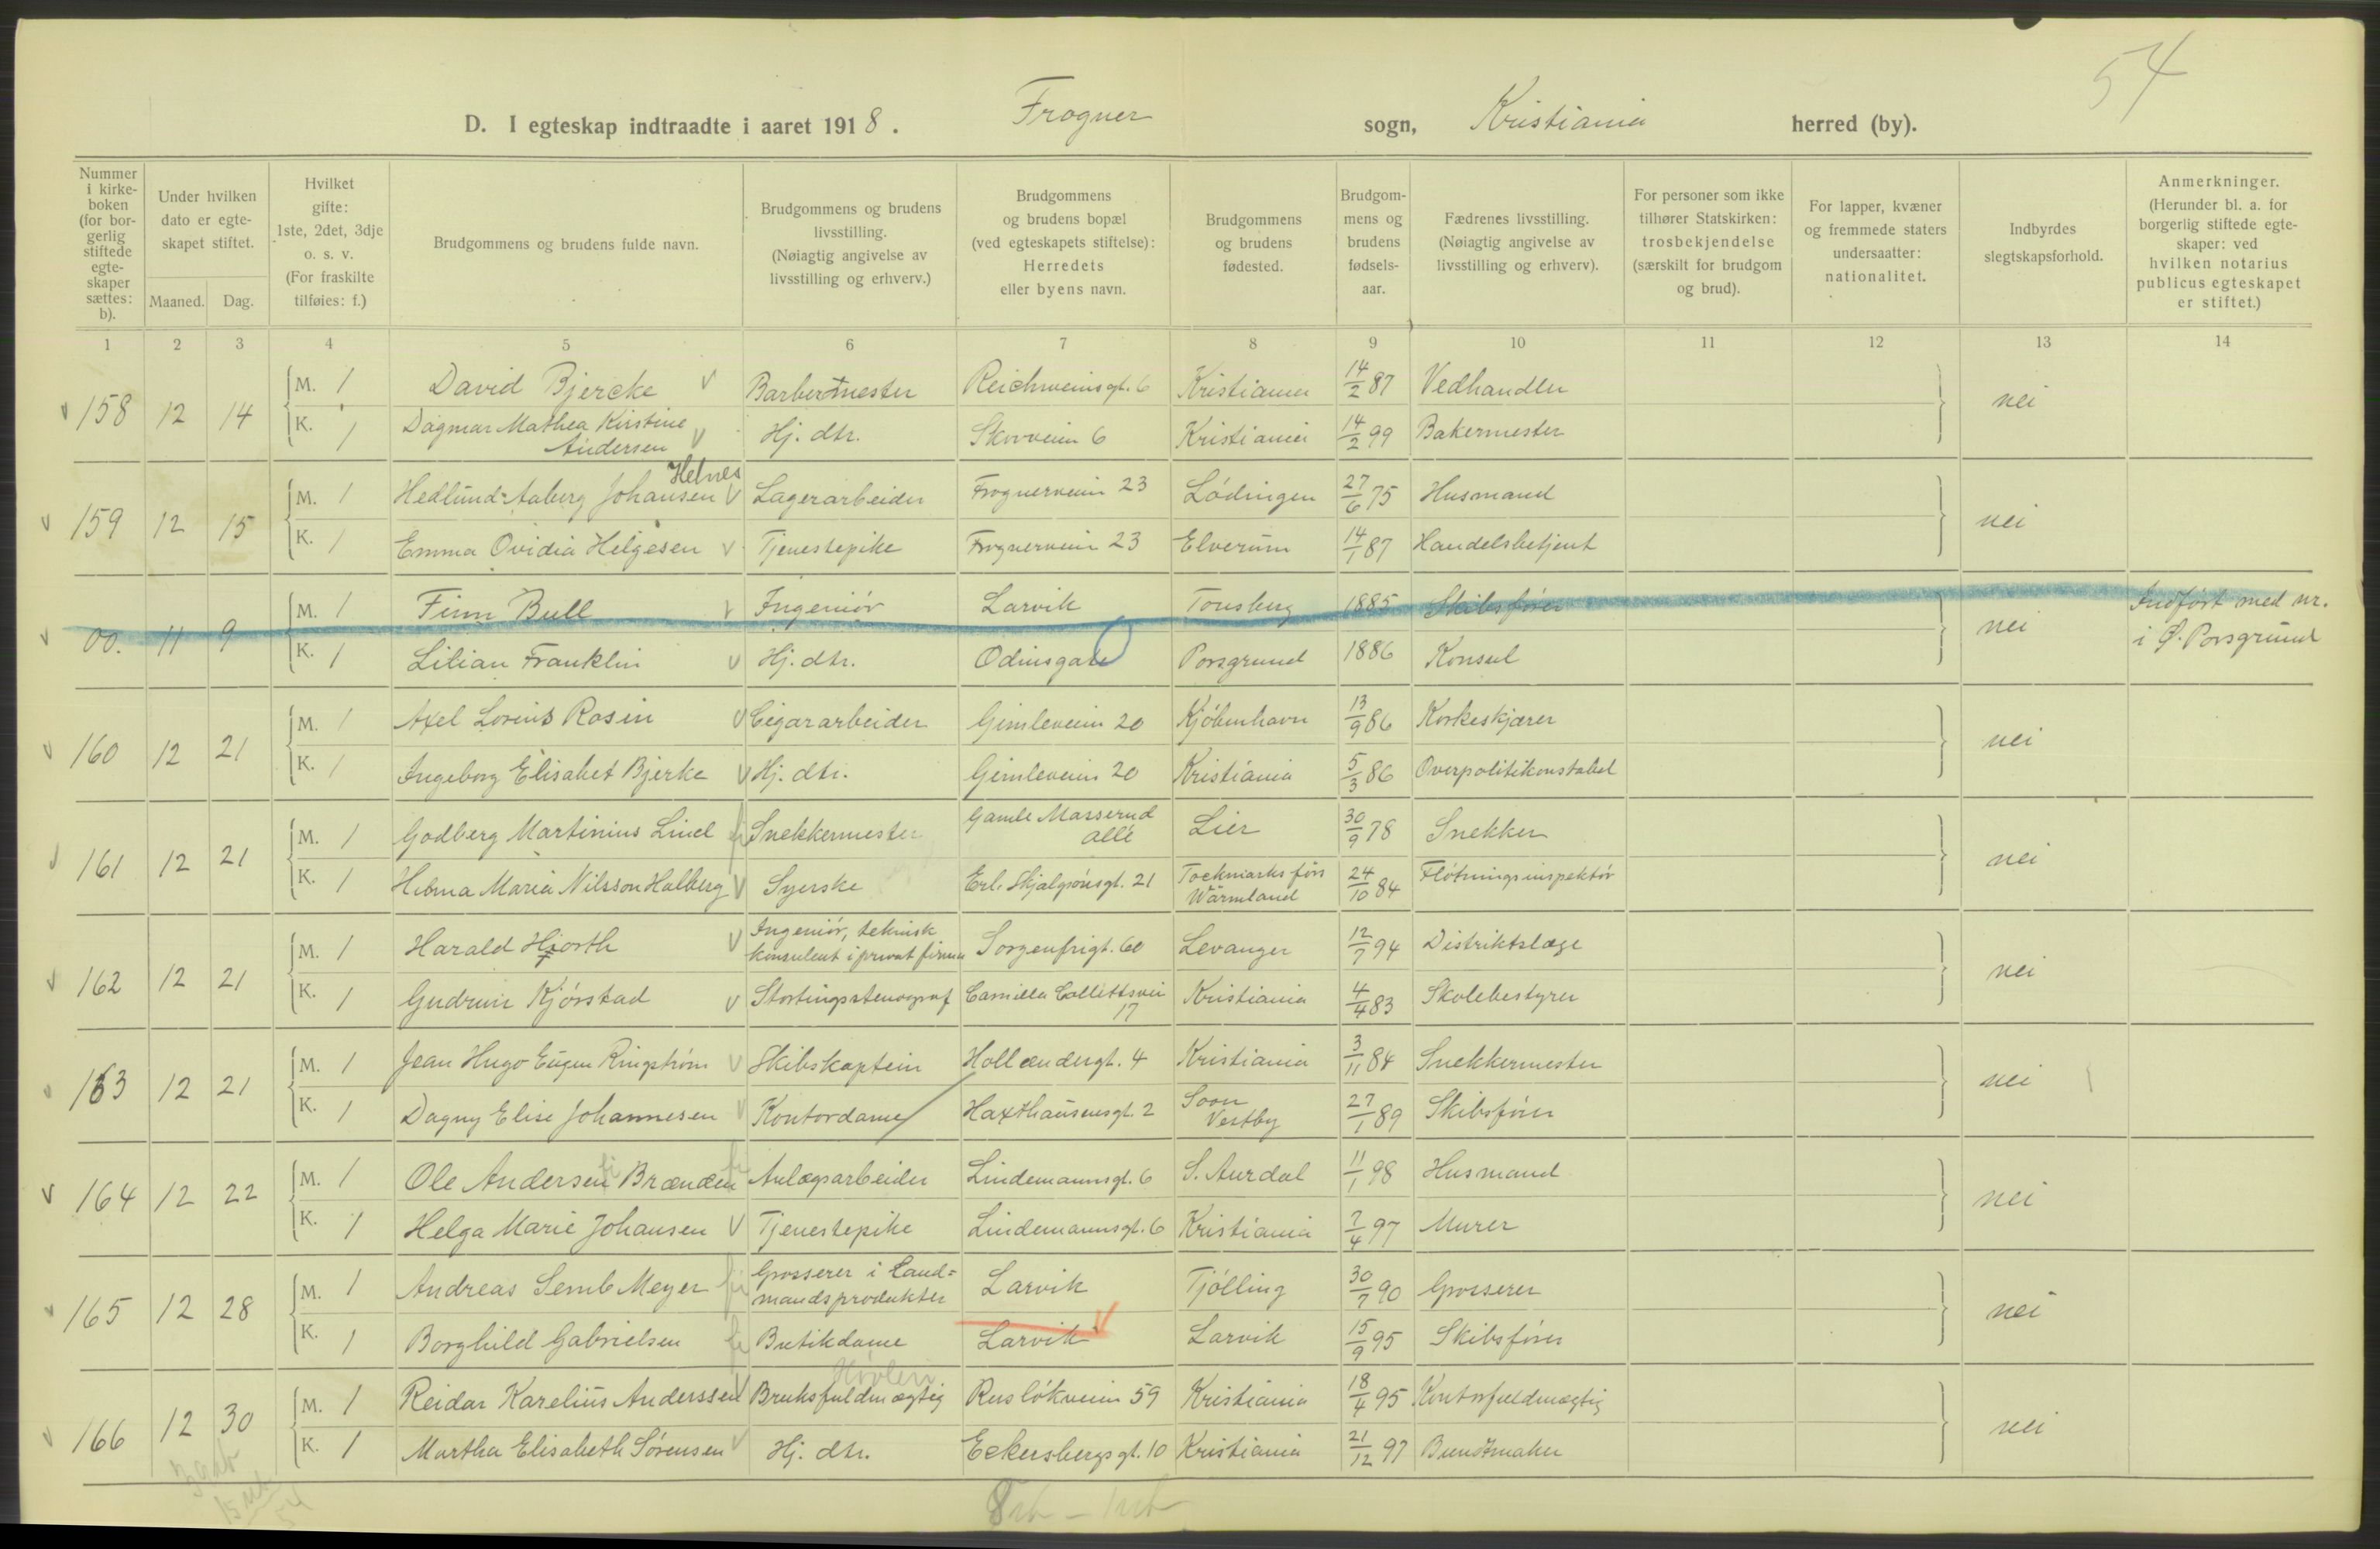 54
D. I egteskap indtraadte i aaret 1918. Frogner sogn, Kristiania herred (by).
Nummer i kirke-boken (for bor-gerlig stiftede egte-skaper sættes: b).
Under hvilken dato er egte-skapet stiftet.
Maaned. Dag.
Hvilket gifte: 1ste, 2det, 3dje o. s. v. (For fraskilte tilføies: f.)
Brudgommens og brudens fulde navn.
Brudgommens og brudens livsstilling. (Nøiagtig angivelse av livsstilling og erhverv.)
Brudgommens og brudens bopæl (ved egteskapets stiftelse): Herredets eller byens navn.
Brudgommens og brudens fødested.
Brudgom-mens og brudens fødsels-aar.
Fædrenes livsstilling. (Nøiagtig angivelse av livsstilling og erhverv).
For personer som ikke tilhører Statskirken: trosbekjendelse (særskilt for brudgom og brud).
For lapper, kvæner og fremmede staters undersaatter: nationalitet.
Indbyrdes slegtskapsforhold.
Anmerkninger. (Herunder bl. a. for borgerlig stiftede egte-skaper: ved hvilken notarius publicus egteskapet er stiftet.)
1 2 3 4 5 6 7 8 9 10 11 12 13 14
158 12 14 M. 1 David Bjercke Barbermester Reichweinsgt. 6 Kristiania 14/2 87 Vedhandler nei
K. 1 Dagmar Mathea Kirstine Andersen Hj. dtr. Skovveien 6 Kristiania 14/2 99 Bakermester
159 12 15 M. 1 Hedlund-Aaberg Johansen Helnes Lagerarbeider Frognerveien 23 Lødingen 27/6 75 Husmand nei
K. 1 Emma Ovidia Helgesen Tjenestepike Frognerveien 23 Elverum 14/1 87 Handelsbetjent
00. 11 9 M. 1 Finn Bull Ingeniør Larvik Tønsberg 1885 Skibsfører nei Indført med nr. i Ø. Porsgrund
K. 1 Lilian Franklin Hj. dtr. Odinsgate Porsgrund 1886 Konsul
160 12 21 M. 1 Axel Lorens Rosin Cigararbeider Gimleveien 20 Kjøbenhavn 13/9 86 Korkeskjærer nei
K. 1 Ingeborg Elisabet Bjerke Hj. dtr. Gimleveien 20 Kristiania 5/3 86 Overpolitikonstabel
161 12 21 M. 1 Godberg Martinius Lind Snekkermester Gamle Masserud allé Lier 30/9 78 Snekker nei
K. 1 Hilma Maria Nilsson Halberg Syerske Erl. Skjalgsønsgt. 21 Töckmarks förs Wärmland 24/10 84 Fløtningsinspektør
162 12 21 M. 1 Harald Hjorth Ingeniør, teknisk konsulent i privat firma Sorgenfrigt. 60 Levanger 12/7 94 Distriktslæge nei
K. 1 Gudrun Kjørstad Stortingsstenograf Camilla Collettsvei 17 Kristiania 4/4 83 Skolebestyrer
163 12 21 M. 1 Jean Hugo Eugen Ringstrøm Skibskaptein Hollændergt. 4 Kristiania 3/11 84 Snekkermester nei
K. 1 Dagny Elise Johannesen Kontordame Haxthausensgt. 2 Soon Vestby 27/1 89 Skibsfører
164 12 22 M. 1 Ole Andersen Brænden Anlægsarbeider Lindemannsgt. 6 S. Aurdal 11/1 98 Husmand nei
K. 1 Helga Marie Johansen Tjenestepike Lindemannsgt. 6 Kristiania 7/4 97 Murer
165 12 28 M. 1 Andreas Semb Meyer Grosserer i Land-mandsprodukter Larvik Tjølling 30/7 90 Grosserer nei
K. 1 Borghild Gabrielsen Butikdame Larvik Larvik 15/9 95 Skibsfører
166 12 30 M. 1 Reidar Karelius Anderssen Høvleri Bruksfuldmægtig Rusløkveien 59 Kristiania 18/4 95 Kontorfuldmægtig nei
K. 1 Martha Elisabeth Sørensen Hj. dtr. Eckersbergsgt. 10 Kristiania 21/12 97 Buntmaker